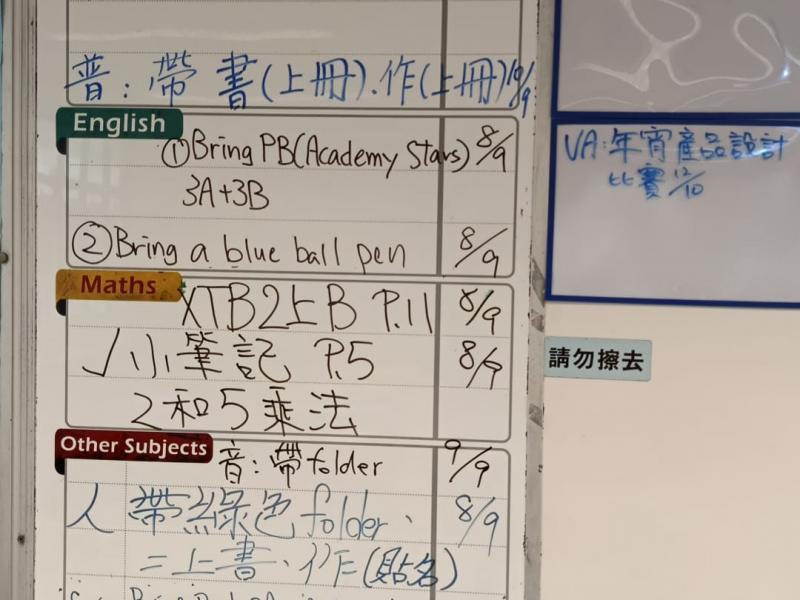 普：帶書(上冊).作(上冊) 10/9
English
①Bring PB(Academy Stars) 8/9
3A+3B
②Bring a blue ball pen 8/9
Maths
XTB2上B P.11 8/9
✓小筆記 P.5 8/9
2和5乘法
Other Subjects
音：帶folder 9/9
人 帶綠色folder、 8/9
二上書、作(貼名)
VA:年宵產品設計
比賽 12/10
請勿擦去